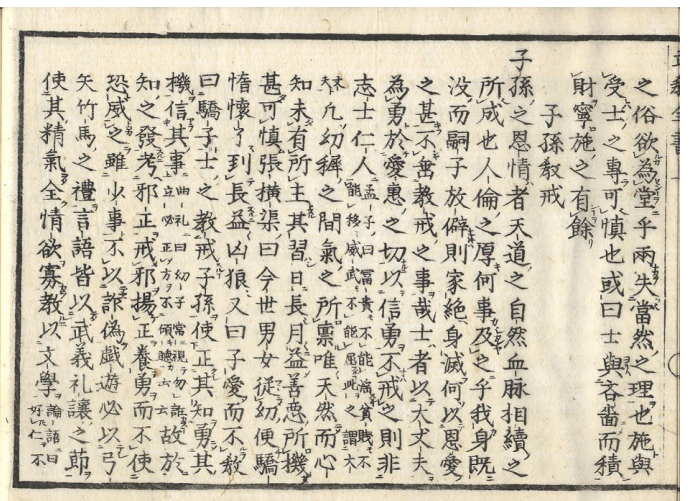 之俗欲為堂乎兩失當然之理也施與
受士之專可慎也或曰士與吝嗇而積
財寧施之有餘
子孫教戒
子孫之恩情者天道之自然血脉相續之
所成也人倫之厚何事及之乎我身既
没而嗣子放僻則家絶身滅何以恩愛
之甚不啻教戒之事哉士者以大丈夫
為勇於愛惠之切以信勇不戒之則非
志士仁人孟子曰冨貴不能滛貧賤不能移威武不能屈此之謂大
丈夫凢幼稺之間氣之所禀唯天然而心
知未有所主其習日長月益善惡所機
甚可慎張横渠曰今世男女從幼便驕
惰懐了到長益凶狼又曰子愛而不教
曰驕子士之教戒子孫使正其知勇其
機信其事曲礼曰幼子常視勿誑立必正方不傾聽云云故於
知之發考邪正戒邪揚正養勇而不使
恐威之雖少事不以詐偽戲遊必以弓
矢竹馬之禮言語皆以武義礼讓之節
使其精氣全情欲寡教以文學論語曰好仁不